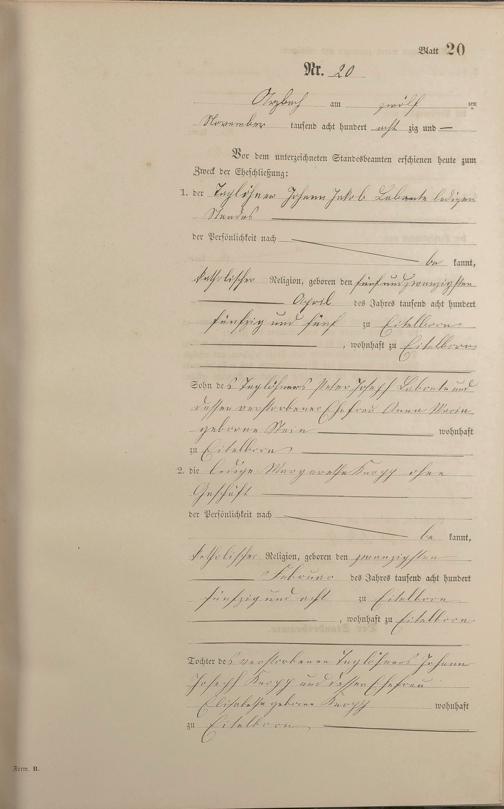 Blatt 20
Nr. 20
Arzbach am zwölf ten
November tausend acht hundert acht zig und —
Vor dem unterzeichneten Standesbeamten erschienen heute zum
Zweck der Eheschließung:
1. der Taglöhner Johann Jakob Labonte ledigen
Standes
der Persönlichkeit nach
be kannt,
katholischer Religion, geboren den fünfundzwanzigsten
April des Jahres tausend acht hundert
fünfzig und fünf zu Eitelborn
, wohnhaft zu Eitelborn
Sohn des Taglöhners Peter Joseph Labonte und
dessen verstorbener Ehefrau Anna Maria
geborne Stein wohnhaft
zu Eitelborn
2. die ledige Margaretha Knopp ohne
Geschäft
der Persönlichkeit nach
be kannt,
katholischer Religion, geboren den zwanzigsten
Februar des Jahres tausend acht hundert
fünfzig und acht zu Eitelborn
, wohnhaft zu Eitelborn
Tochter des verstorbenen Taglöhners Johann
Joseph Knopp und dessen Ehefrau
Elisabetha geborne Knopp wohnhaft
zu Eitelborn
Form. B.